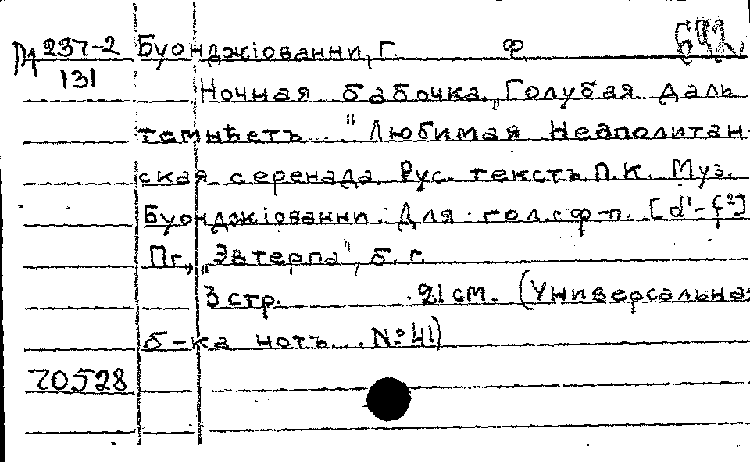 237-2 Буонджiованни, Г. Ф
131
Ночная бабочка. „Голубая даль
темнѣетъ..." Любимая Неаполитан-
ская серенада. Рус. текстъ П.К. Муз.
Буонджiованни. Для гол. с ф-п. [d'-f²]
Пг., „Эвтерпа", б. г.
3 стр. 21 см. (Универсальная
б-ка нотъ... № 41)
70528